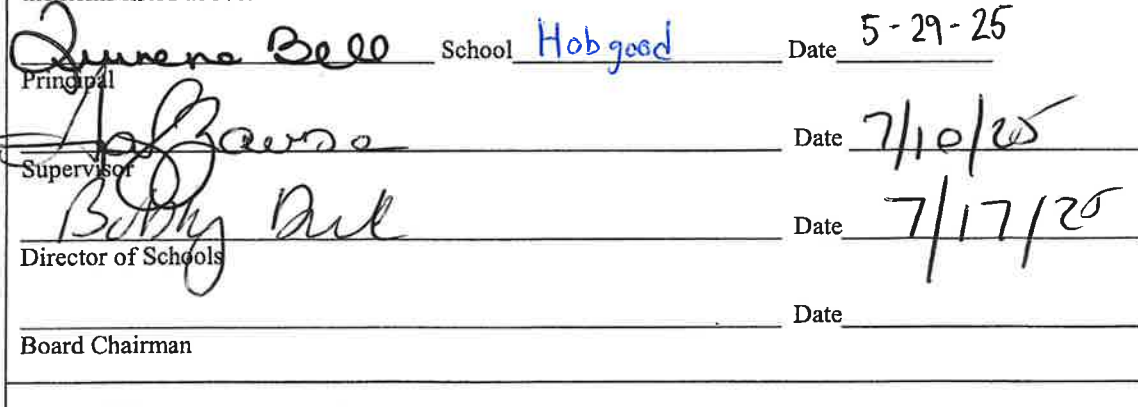 Bell School Hobgood Date 5-29-25
Principal
Date 7/10/25
Supervisor
Bobby Date 7/17/25
Director of Schools
Date
Board Chairman